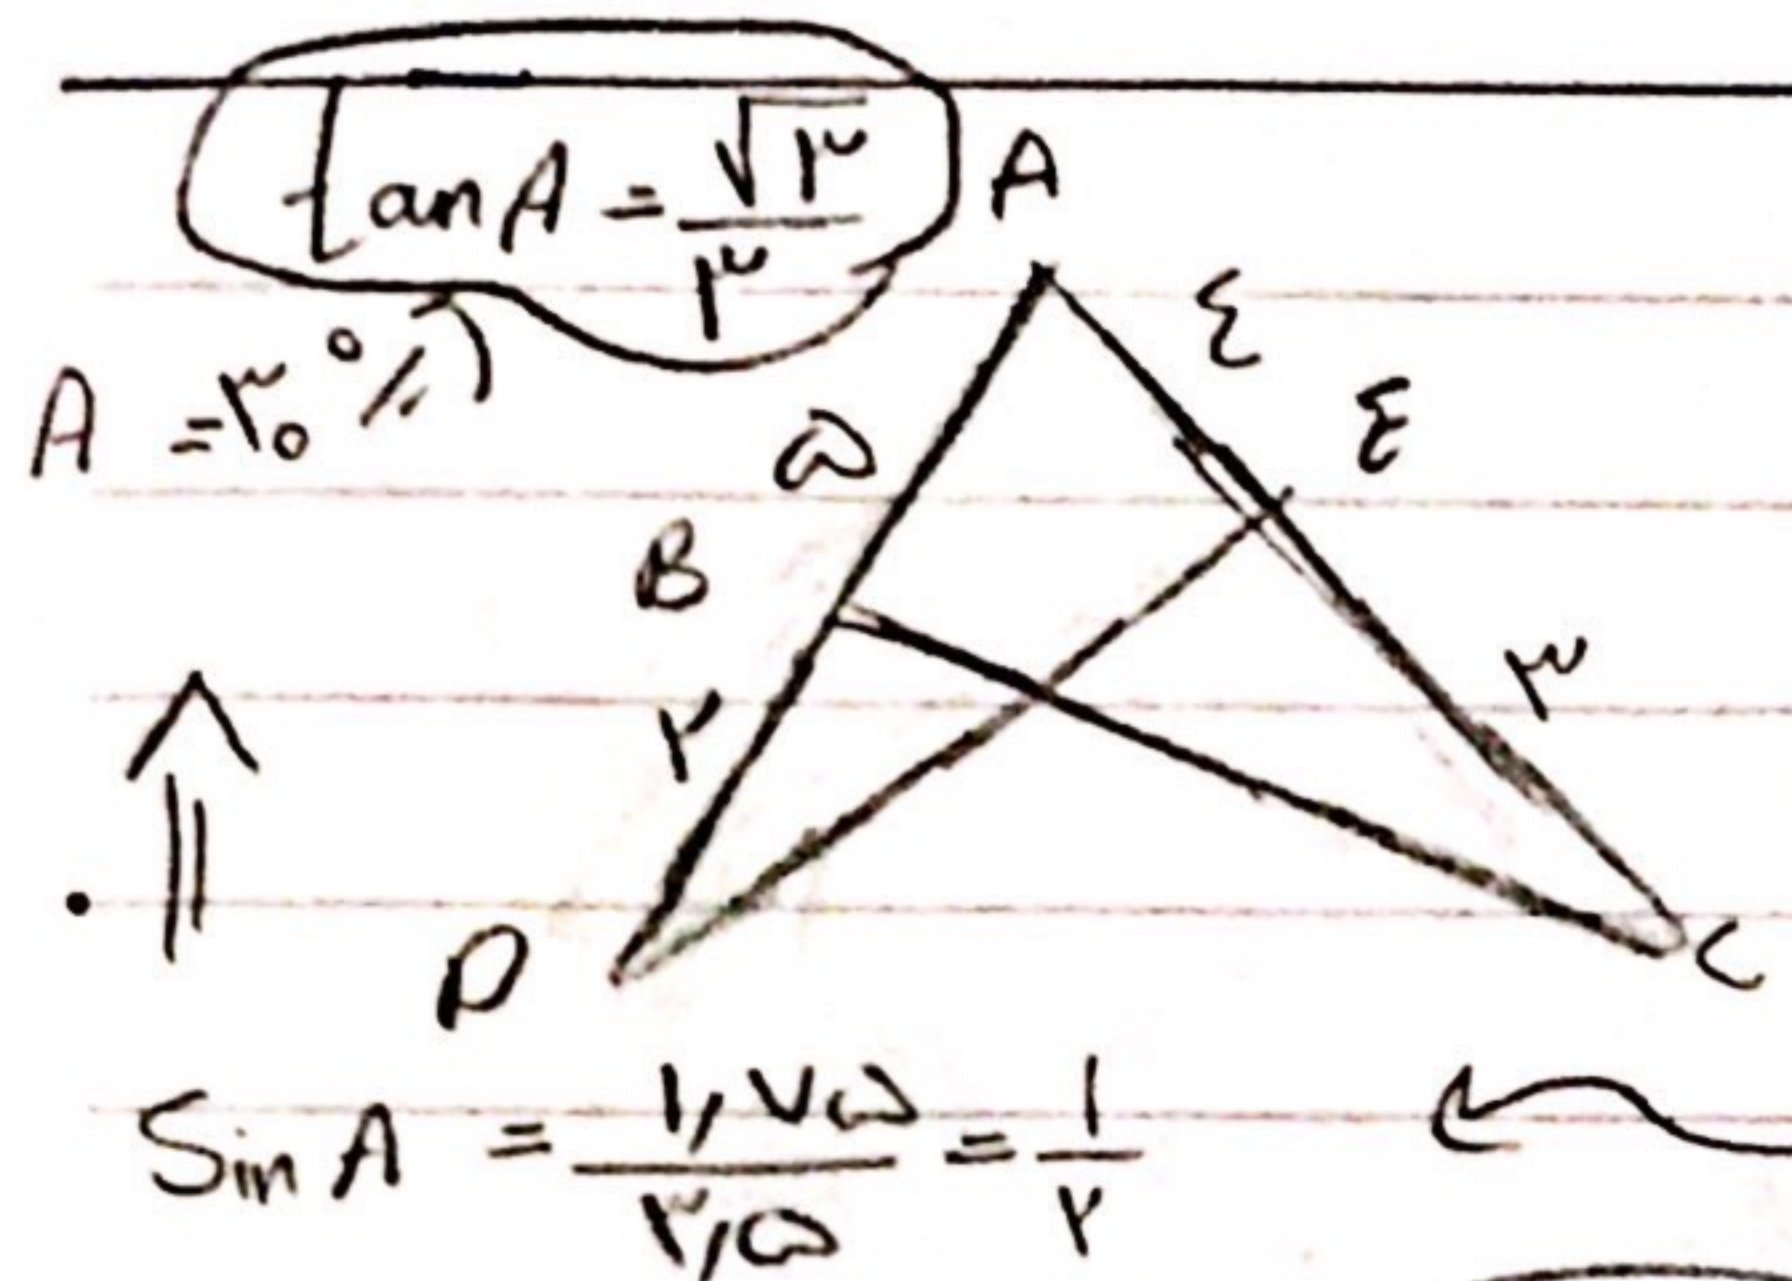 tanA = √۳/۳
A
A = ۳۰°
۴
E
۵
B
۳
۲
D
C
Sin A = ۱,۷۵/۳,۵ = ۱/۲